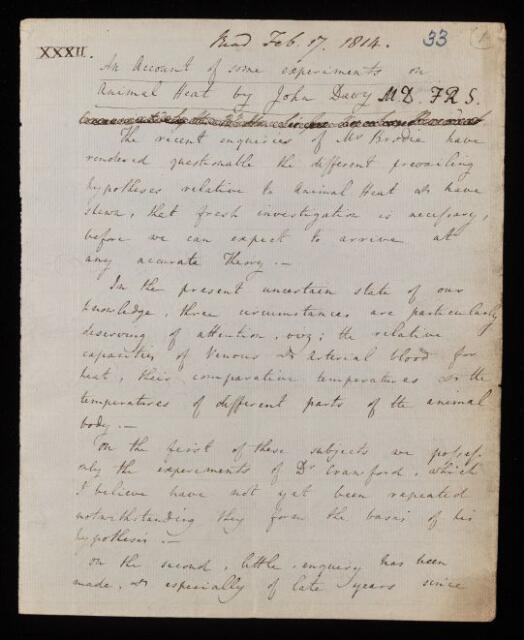 Read Feb. 17. 1814.
33
XXXII.
An Account of some experiments on
Animal Heat by John Davy M.D. F.R.S.
The recent enquiries of Mr Brodie have
rendered questionable the different prevailing
hypotheses relative to Animal Heat & have
shewn, that fresh investigation is necessary,
before we can expect to arrive at
any accurate Theory. —
In the present uncertain state of our
knowledge, three circumstances are particularly
deserving of attention, viz; the relative
capacities of Venous & Arterial blood for
heat, their comparative temperatures & the
temperatures of different parts of the animal
body. —
On the first of these subjects we possess
only the experiments of Dr Crawford, which
I believe have not yet been repeated
notwithstanding they form the basis of his
hypothesis. —
On the second, little enquiry has been
made, & especially of late years since